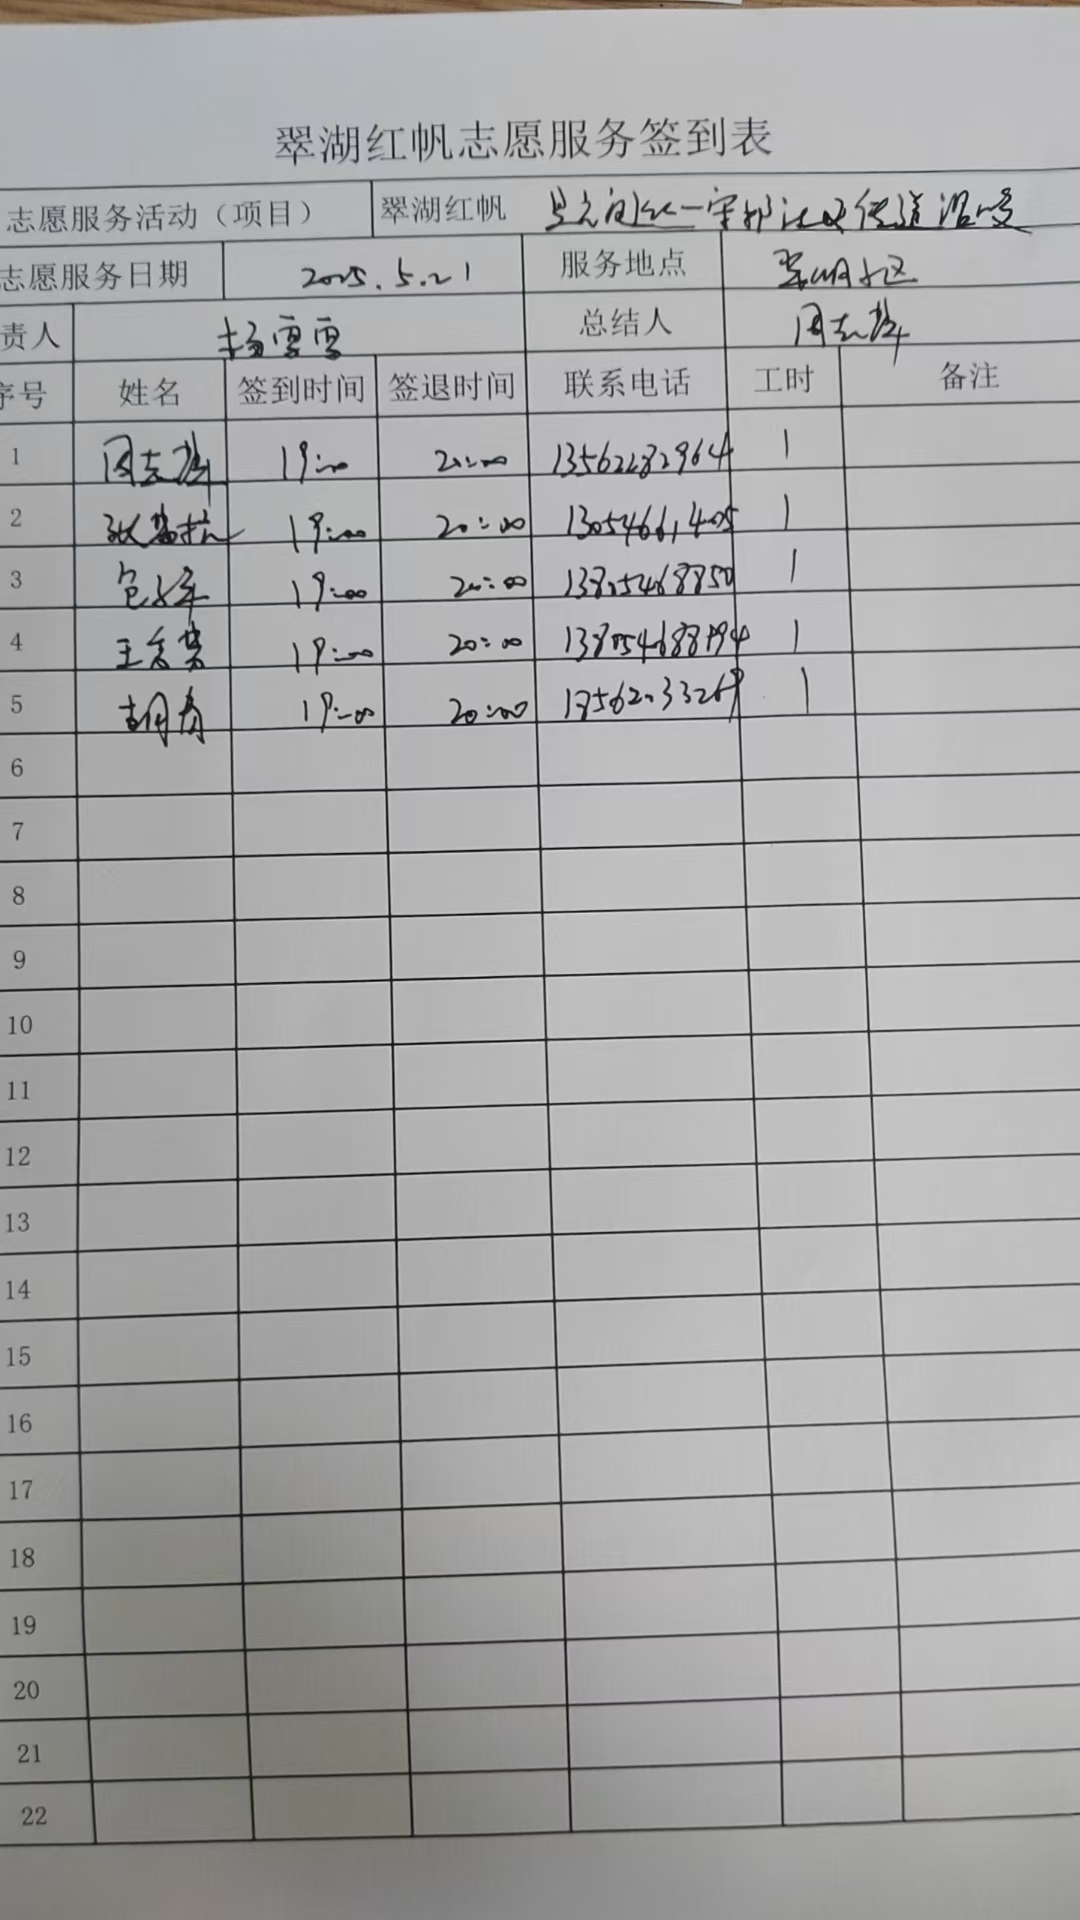 翠湖红帆志愿服务签到表
志愿服务活动（项目） 翠湖红帆 传道温暖
志愿服务日期 2025.5.21 服务地点 翠湖小区
责人 杨雪雪 总结人 周志
序号 姓名 签到时间 签退时间 联系电话 工时 备注
1 周志 19:00 20:00 13562282964 1
2 张 19:00 20:00 13054661405 1
3 19:00 20:00 13805468850 1
4 王秀 19:00 20:00 1
5 胡 19:00 20:00 1
6
7
8
9
10
11
12
13
14
15
16
17
18
19
20
21
22